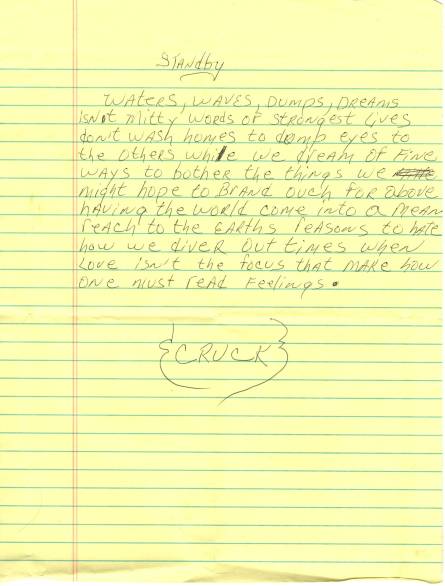 Standby
Waters, waves, dumps, dreams
isn't mitty words of strongest lives
don't wash homes to dump eyes to
the others while we dream of fine
ways to bother the things we
might hope to brand ouch for above
having the world come into a mean
reach to the earths reasons to hate
how we diver out times when
love isn't the focus that make how
one must read feelings.
{CRUCK}